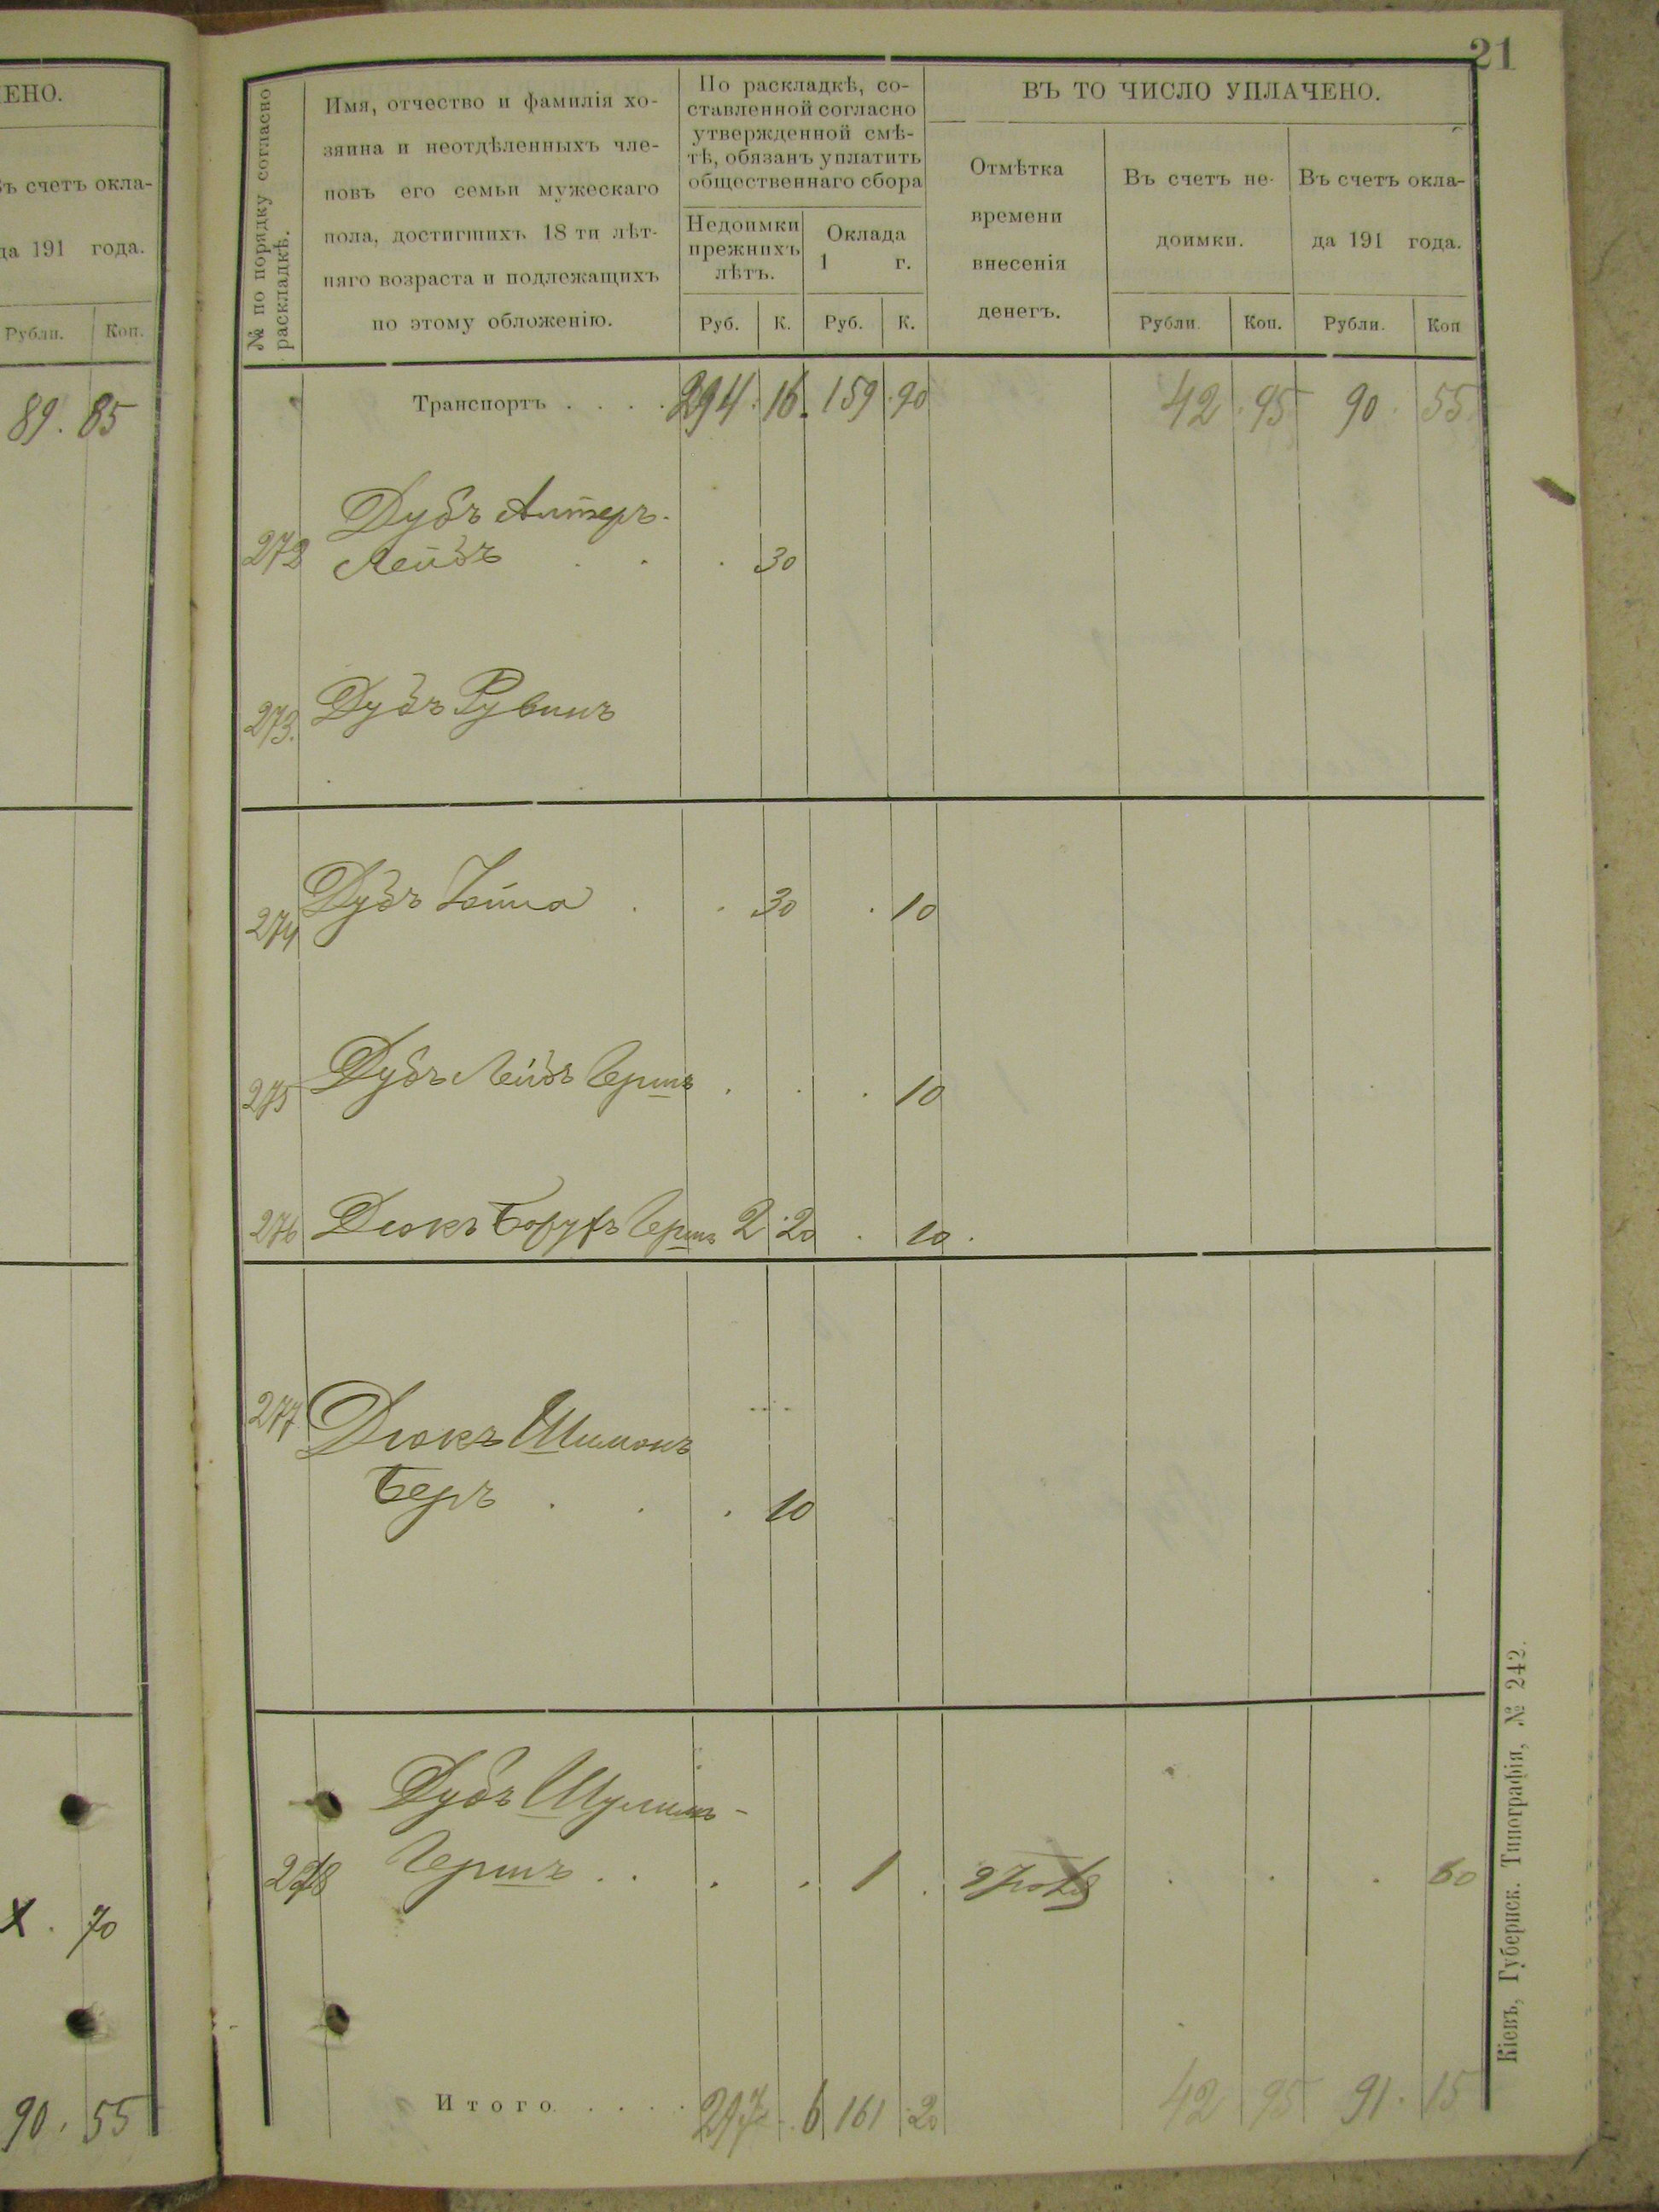 21
ЕНО.
ъ счетъ окла-
да 191 года.
Рубли. Коп.
89. 85
X . 70
90. 55
№ по порядку согласно раскладкѣ.
Имя, отчество и фамилія хо-
зяина и неотдѣленныхъ чле-
новъ его семьи мужескаго
пола, достигшихъ 18 ти лѣт-
няго возраста и подлежащихъ
по этому обложенію.
По раскладкѣ, со-
ставленной согласно
утвержденной смѣ-
тѣ, обязанъ уплатить
общественнаго сбора
Недоимки
прежнихъ
лѣтъ.
Оклада
1 г.
Руб. К. Руб. К.
ВЪ ТО ЧИСЛО УПЛАЧЕНО.
Отмѣтка
времени
внесенія
денегъ.
Въ счетъ не-
доимки.
Въ счетъ окла-
да 191 года.
Рубли. Коп. Рубли. Коп
Транспортъ . . . . 294. 16. 159 .90 42 .95 90. 55.
Дубъ Алтеръ-
272 Лейбъ . . . 30
273. Дубъ Рувинъ
274 Дубъ . . 30 . 10
275 Дубъ Лейбъ Герш . . . 10
276 Дюкъ Борухъ Герш 2 .20 . 10.
277 Дюкъ Шимонъ
Беръ . . . 10
Дубъ Шулимъ-
278 Гершъ . . . . 1 . . . . 60
Итого. . . . . 297 . 6 161 .20 42 95 91. 15
Кіевъ, Губернск. Типографія, № 242.